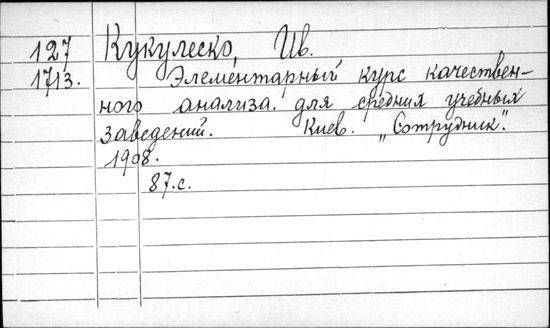 127 Кукулеско, Ив.
1713. Элементарный курс качествен-
ного анализа для средних учебных
заведений. Киев. „Сотрудник".
1908.
87.с.